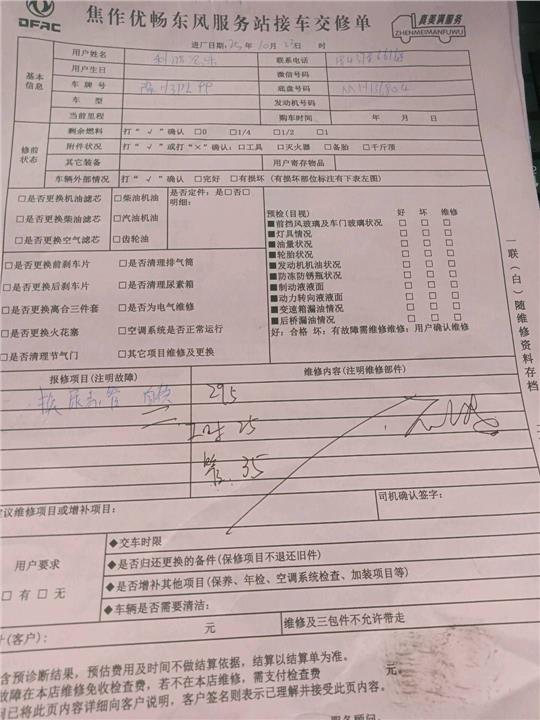 DFAC
焦作优畅东风服务站接车交修单
真美满服务
ZHENMEIMANFUWU
进厂日期: 年 10 月 23 日 时
基本信息
用户姓名
联系电话
用户生日
微信号码
车牌号
底盘号码
车型
发动机号码
当前里程
购车时间 年 月 日
修前状态
剩余燃料 打“√”确认 □0 □1/4 □1/2 □1
附件状况 打“√”或打“×”确认: □工具 □灭火器 □备胎 □千斤顶
其它装备
用户寄存物品
车辆外部情况 打“√”确认 □完好 □有损坏(有损坏部位标注有下表左图)
□是否更换机油滤芯 □柴油机油
□是否更换柴油滤芯 □汽油机油
□是否更换空气滤芯 □齿轮油
是否定件: 是□否□
明细:
□是否更换前刹车片 □是否清理排气筒
□是否更换后刹车片 □是否清理尿素箱
□是否更换离合三件套 □是否为电气维修
□是否更换火花塞 □空调系统是否正常运行
□是否清理节气门 □其它项目维修及更换
预检(目视) 好 坏 维修
■前挡风玻璃及车门玻璃状况 □ □ □
■灯具情况 □ □ □
■油量状况 □ □ □
■轮胎状况 □ □ □
■发动机机油状况 □ □ □
■防冻防锈瓶状况 □ □ □
■制动液液面 □ □ □
■动力转向液液面 □ □ □
■变速箱漏油情况 □ □ □
■后桥漏油情况 □ □ □
好: 合格 坏: 有故障需维修维修: 用户确认维修
一联(白)随维修资料存档
报修项目(注明故障)
维修内容(注明维修部件)
换尿素管
295
工时 25
35
建议维修项目或增补项目:
司机确认签字:
用户要求
□有□无
◆交车时限
◆是否归还更换的备件(保修项目不退还旧件)
◆是否增补其他项目(保养、年检、空调系统检查、加装项目等)
◆车辆是否需要清洁:
计(客户): 元
维修及三包件不允许带走
含预诊断结果,预估费用及时间不做结算依据,结算以结算单为准。
故障在本店维修免收检查费,若不在本店维修,需支付检查费 元。
已将此页内容详细向客户说明,客户签名则表示已理解并接受此页内容。
服务顾问